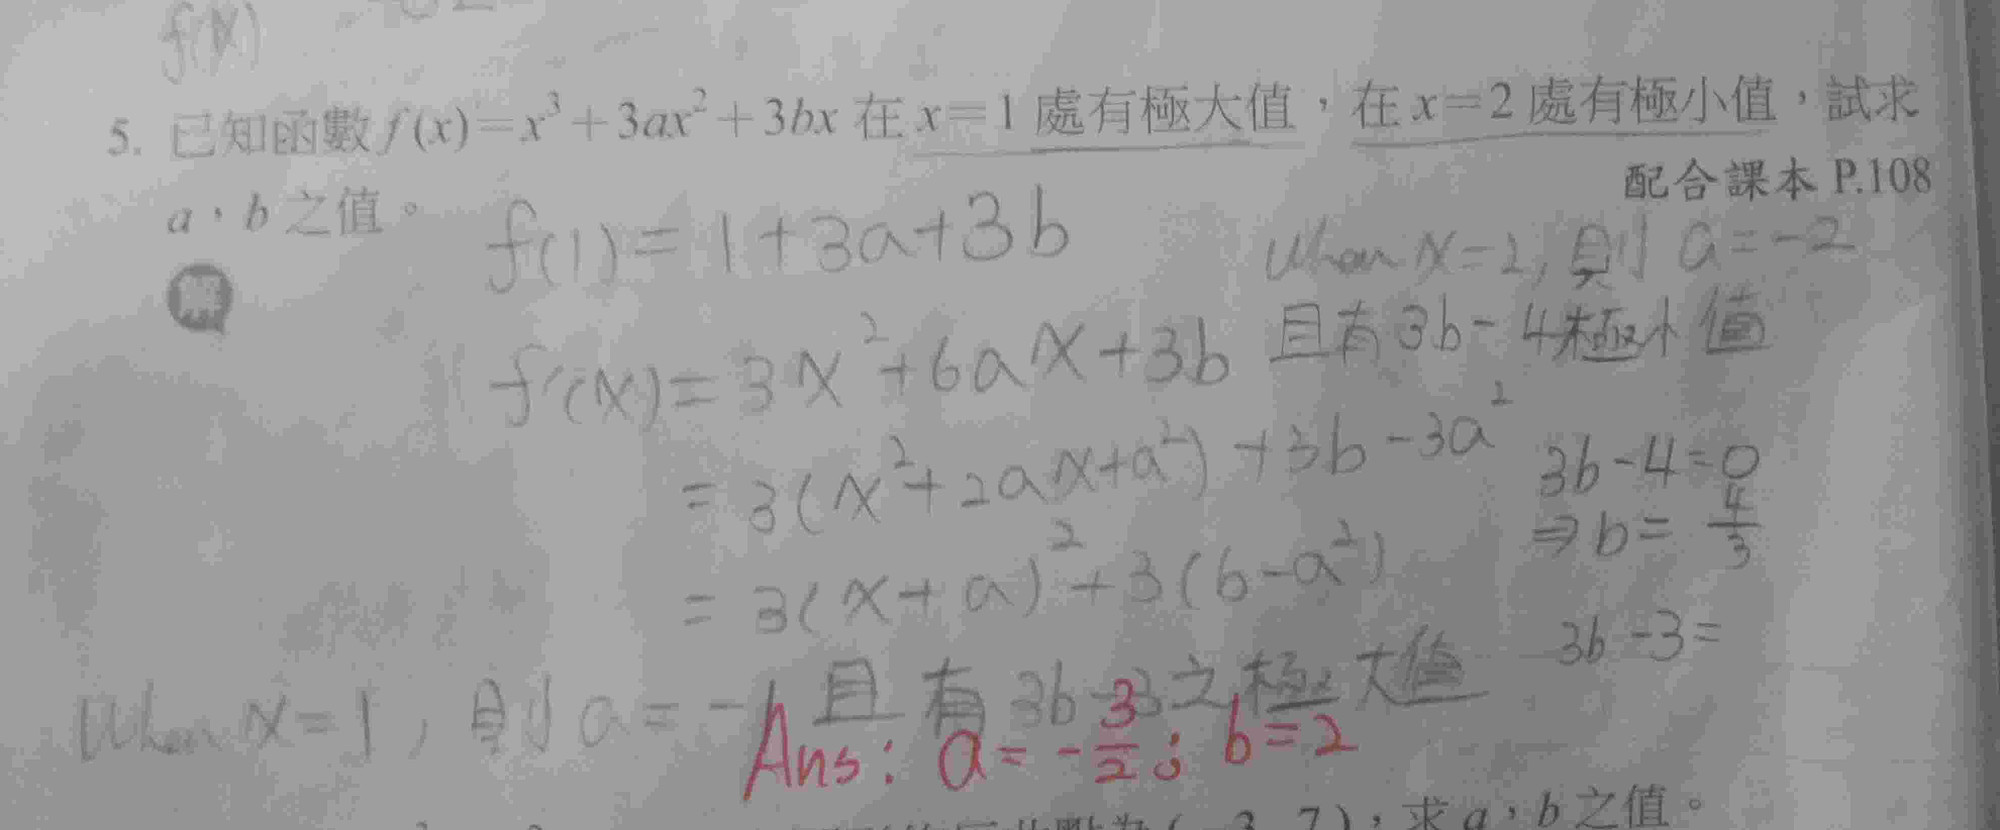 f(x)
5. 已知函數 f(x)=x³+3ax²+3bx 在 x=1 處有極大值，在 x=2 處有極小值，試求
配合課本 P.108
a，b 之值。
解
f(1)=1+3a+3b
f'(x)=3x²+6ax+3b
=3(x²+2ax+a²)+3b-3a²
=3(x+a)²+3(b-a²)
When x=1, 則 a=-1 且有 3b-3之極大值
When x=2, 則 a=-2
且有 3b-4極小值
3b-4=0
⇒ b=4/3
3b-3=
Ans: a=-3/2; b=2
(-3, 7)，求 a，b 之值。